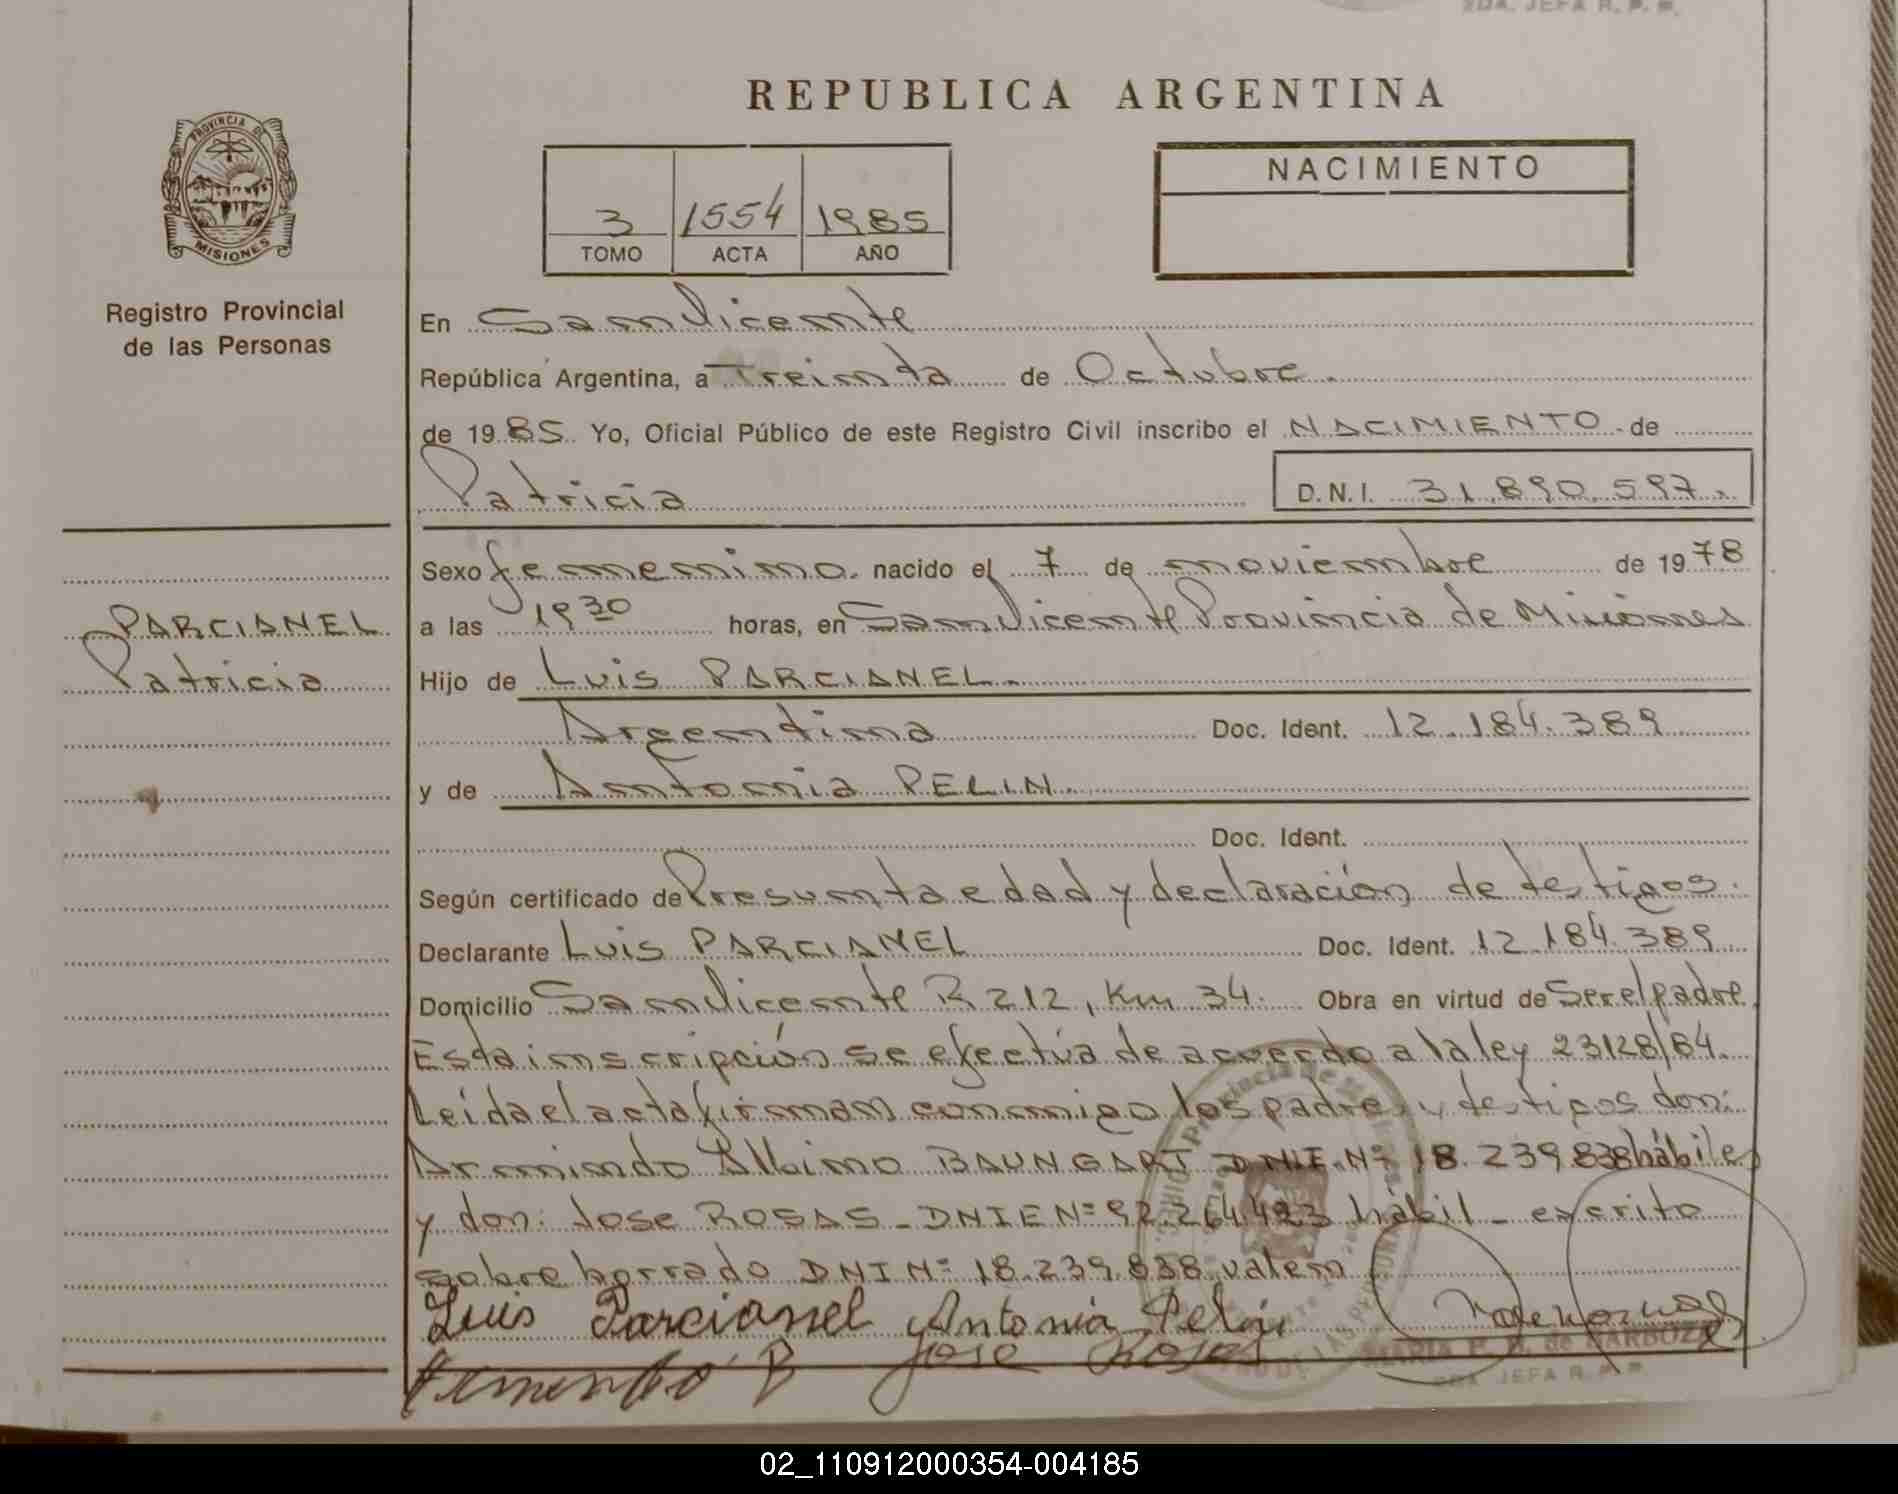 2DA. JEFA R. P. P.
REPUBLICA ARGENTINA
PROVINCIA DE
MISIONES
Registro Provincial
de las Personas
3 1554 1985
TOMO ACTA AÑO
NACIMIENTO
En San Vicente
República Argentina, a Treinta de Octubre.
de 1985. Yo, Oficial Público de este Registro Civil inscribo el NACIMIENTO de
Patricia D.N.I. 31.890.597.
Sexo femenino. nacido el 7 de noviembre de 1978
PARCIANEL
Patricia
a las 19 30 horas, en San Vicente Provincia de Misiones
Hijo de Luis PARCIANEL.
Argentina Doc. Ident. 12.184.389
y de Antonia PELIN.
Doc. Ident.
Según certificado de Presunta edad y declaración de testigos.
Declarante Luis PARCIANEL Doc. Ident. 12.184.389
Domicilio San Vicente R 212, Km 34. Obra en virtud de Ser el padre
Esta inscripción se efectúa de acuerdo a la ley 23128/84.
Leída el acta firman conmigo los padres y testigos don:
Armindo Albino BAUNGART DNIE Nº 18.239.838 hábiles
y don: Jose ROSAS - DNIE Nº 92.264.423 hábil - escrito
sobre borrado DNI Nº 18.239.838 valen
Luis Parcianel Antonia Pelin
Jose Rosas
MARIA de BARBOZA
2DA. JEFA R. P. P.
02_110912000354-004185